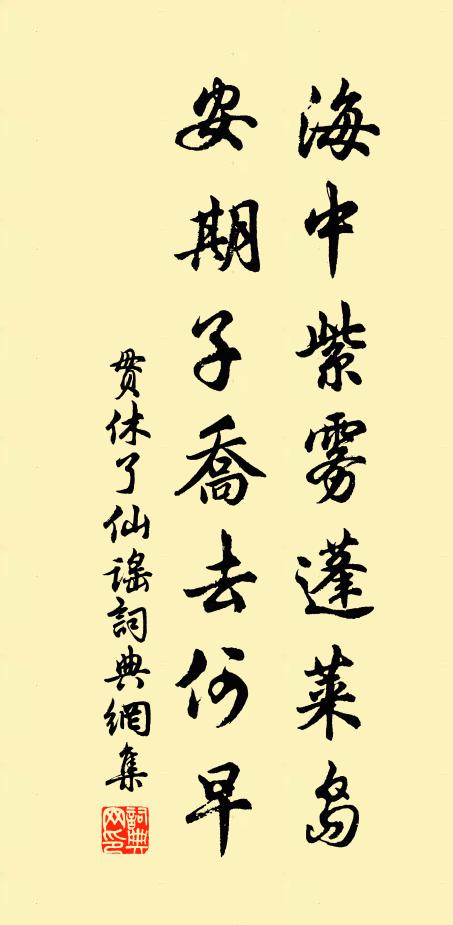 海中紫雾蓬莱岛
安期子喬去何早
贯休了仙谣詞典網集
詞典网印